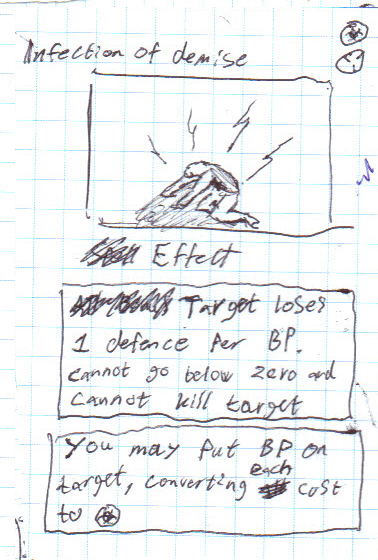 Infection of demise
Effect
Target loses
1 defence Per BP.
cannot go below zero and
cannot kill target
You may Put BP on
target, converting each cost
to